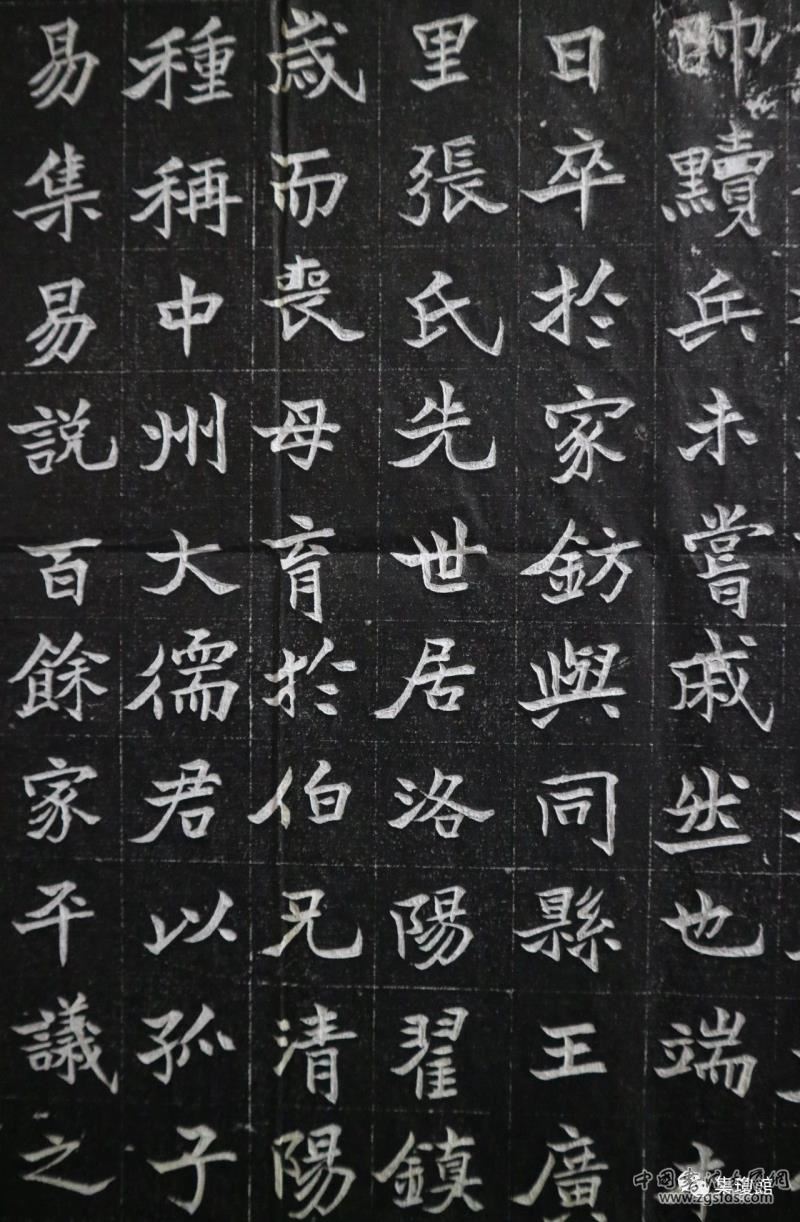 帥黷兵未嘗戚然也端
日卒於家鈁與同縣王廣
里張氏先世居洛陽翟鎮
歲而喪母育於伯兄清陽
種稱中州大儒君以孤子
易集易說百餘家平議之
集瓊館
www.zgsfds.com